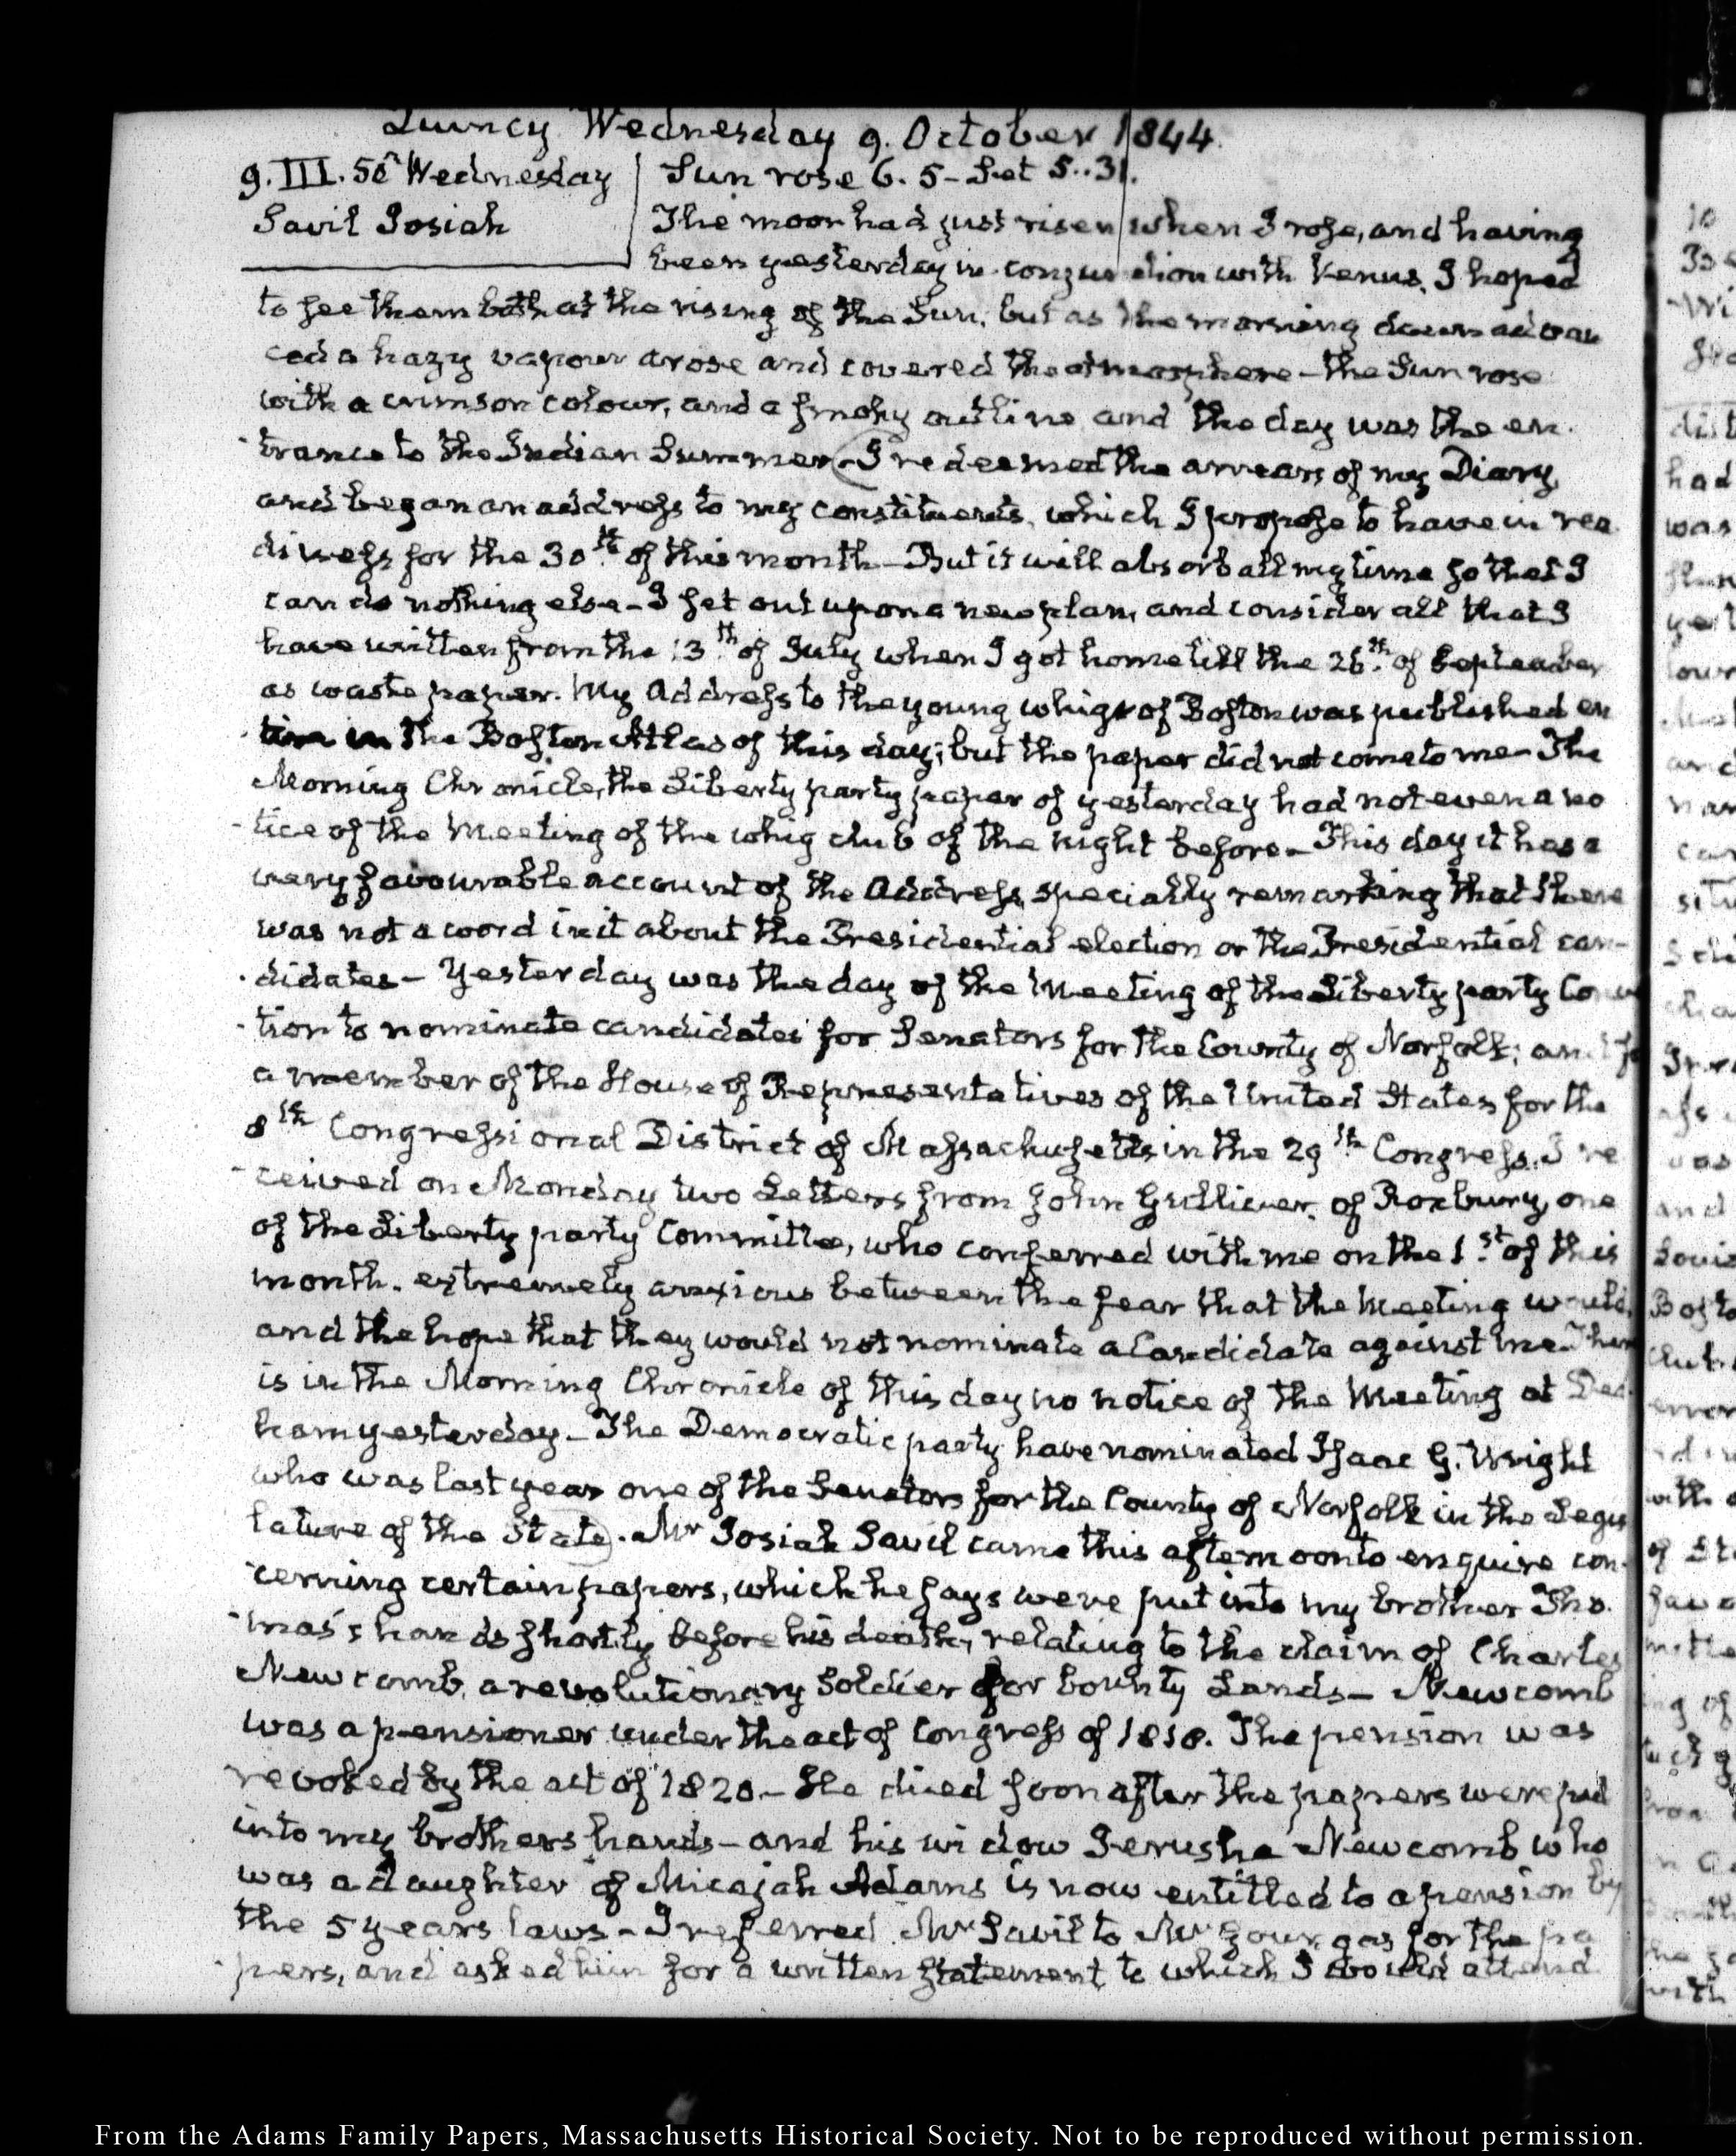 Quincy Wednesday 9. October 1844.
9. III. 50. Wednesday
Savil Josiah
Sun rose 6. 5 – Set 5..31.
The moon had just risen when I rose, and having
been yesterday in conjunction with Venus, I hoped
to see them both at the rising of the Sun, but as the morning dawn advan
ced a hazy vapour arose and covered the atmosphere – the Sun rose
with a crimson colour, and a smoky outline and the day was the en.
trance to the Indian Summer – I redeemed the arrears of my Diary,
and began an address to my constituents, which I propose to have in rea
diness for the 30th of this month – But it will absorb all my time so that I
can do nothing else – I set out upon a new plan, and consider all that I
have written from the 13th of July when I got home till the 26th of September
as waste paper. My Address to the young whigs of Boston was published en
tire in the Boston Atlas of this day; but the paper did not come to me – The
Morning Chronicle, the Liberty party paper of yesterday had not even a no
tice of the Meeting of the whig club of the night before – This day it has a
very favourable account of the Address, specially remarking that there
was not a word in it about the Presidential election or the Presidential can–
didates – Yesterday was the day of the Meeting of the Liberty party Conv
tion to nominate candidates for Senators for the County of Norfolk; and for
a member of the House of Representatives of the United States for the
8th Congressional District of Massachusetts in the 29th Congress. I re
ceived on Monday two Letters from John Gulliver, of Roxbury, one
of the Liberty party Committee, who conferred with me on the 1st of this
month. extremely anxious between the fear that the Meeting would,
and the hope that they would not nominate a Candidate against me. There
is in the Morning Chronicle of this day no notice of the Meeting at Ded.
ham yesterday – The Democratic party have nominated Isaac G. Wright
who was last year one of the Senators for the County of Norfolk in the Legis
lature of the State. Mr Josiah Savil came this afternoon to enquire con.
cerning certain papers, which he says were put into my brother Tho.
mas's hands shortly before his death, relating to the claim of Charles
Newcomb, a revolutionary Soldier for bounty Lands – Newcomb
was a pensioner under the act of Congress of 1818. The pension was
revoked by the act of 1820 – He died soon after the papers were put
into my brothers hands – and his widow Jerusha Newcomb who
was a daughter of Micajah Adams is now entitled to a pension by
the 5 years laws – I referred Mr Savil to Mr Gourgas for the pa
pers, and asked him for a written statement to which I would attend.
From the Adams Family Papers, Massachusetts Historical Society. Not to be reproduced without permission.